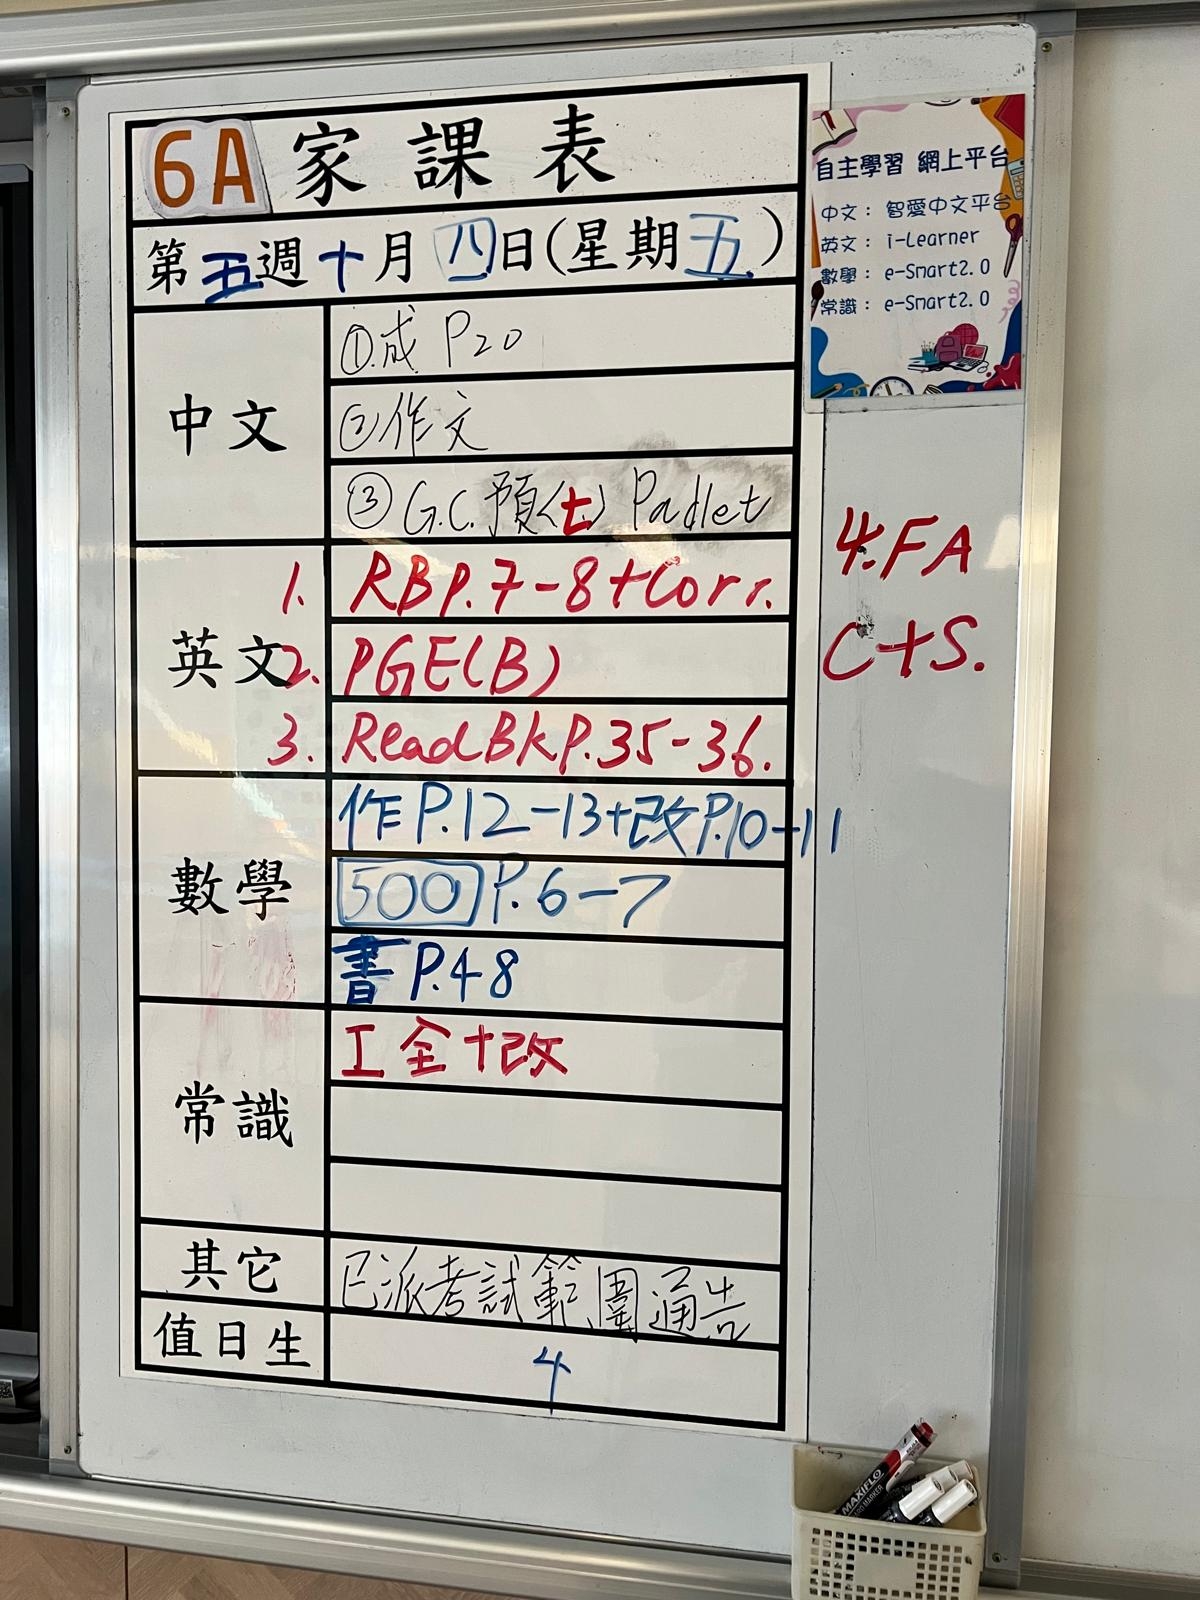 6A 家課表
第五週十月四日(星期五)
中文
①成 P20
②作文
③G.C.預(七) Padlet
英文
1. RB P.7-8+Corr.
2. PGE(B)
3. Read BK P.35-36.
4. FA
C+S.
數學
作 P.12-13+改P.10-11
500 P.6-7
書 P.48
常識
工全+改
其它
已派考試範圍通告
值日生
4
自主學習 網上平台
中文： 智愛中文平台
英文： i-Learner
數學： e-Smart2.0
常識： e-Smart2.0
MAXIFLO